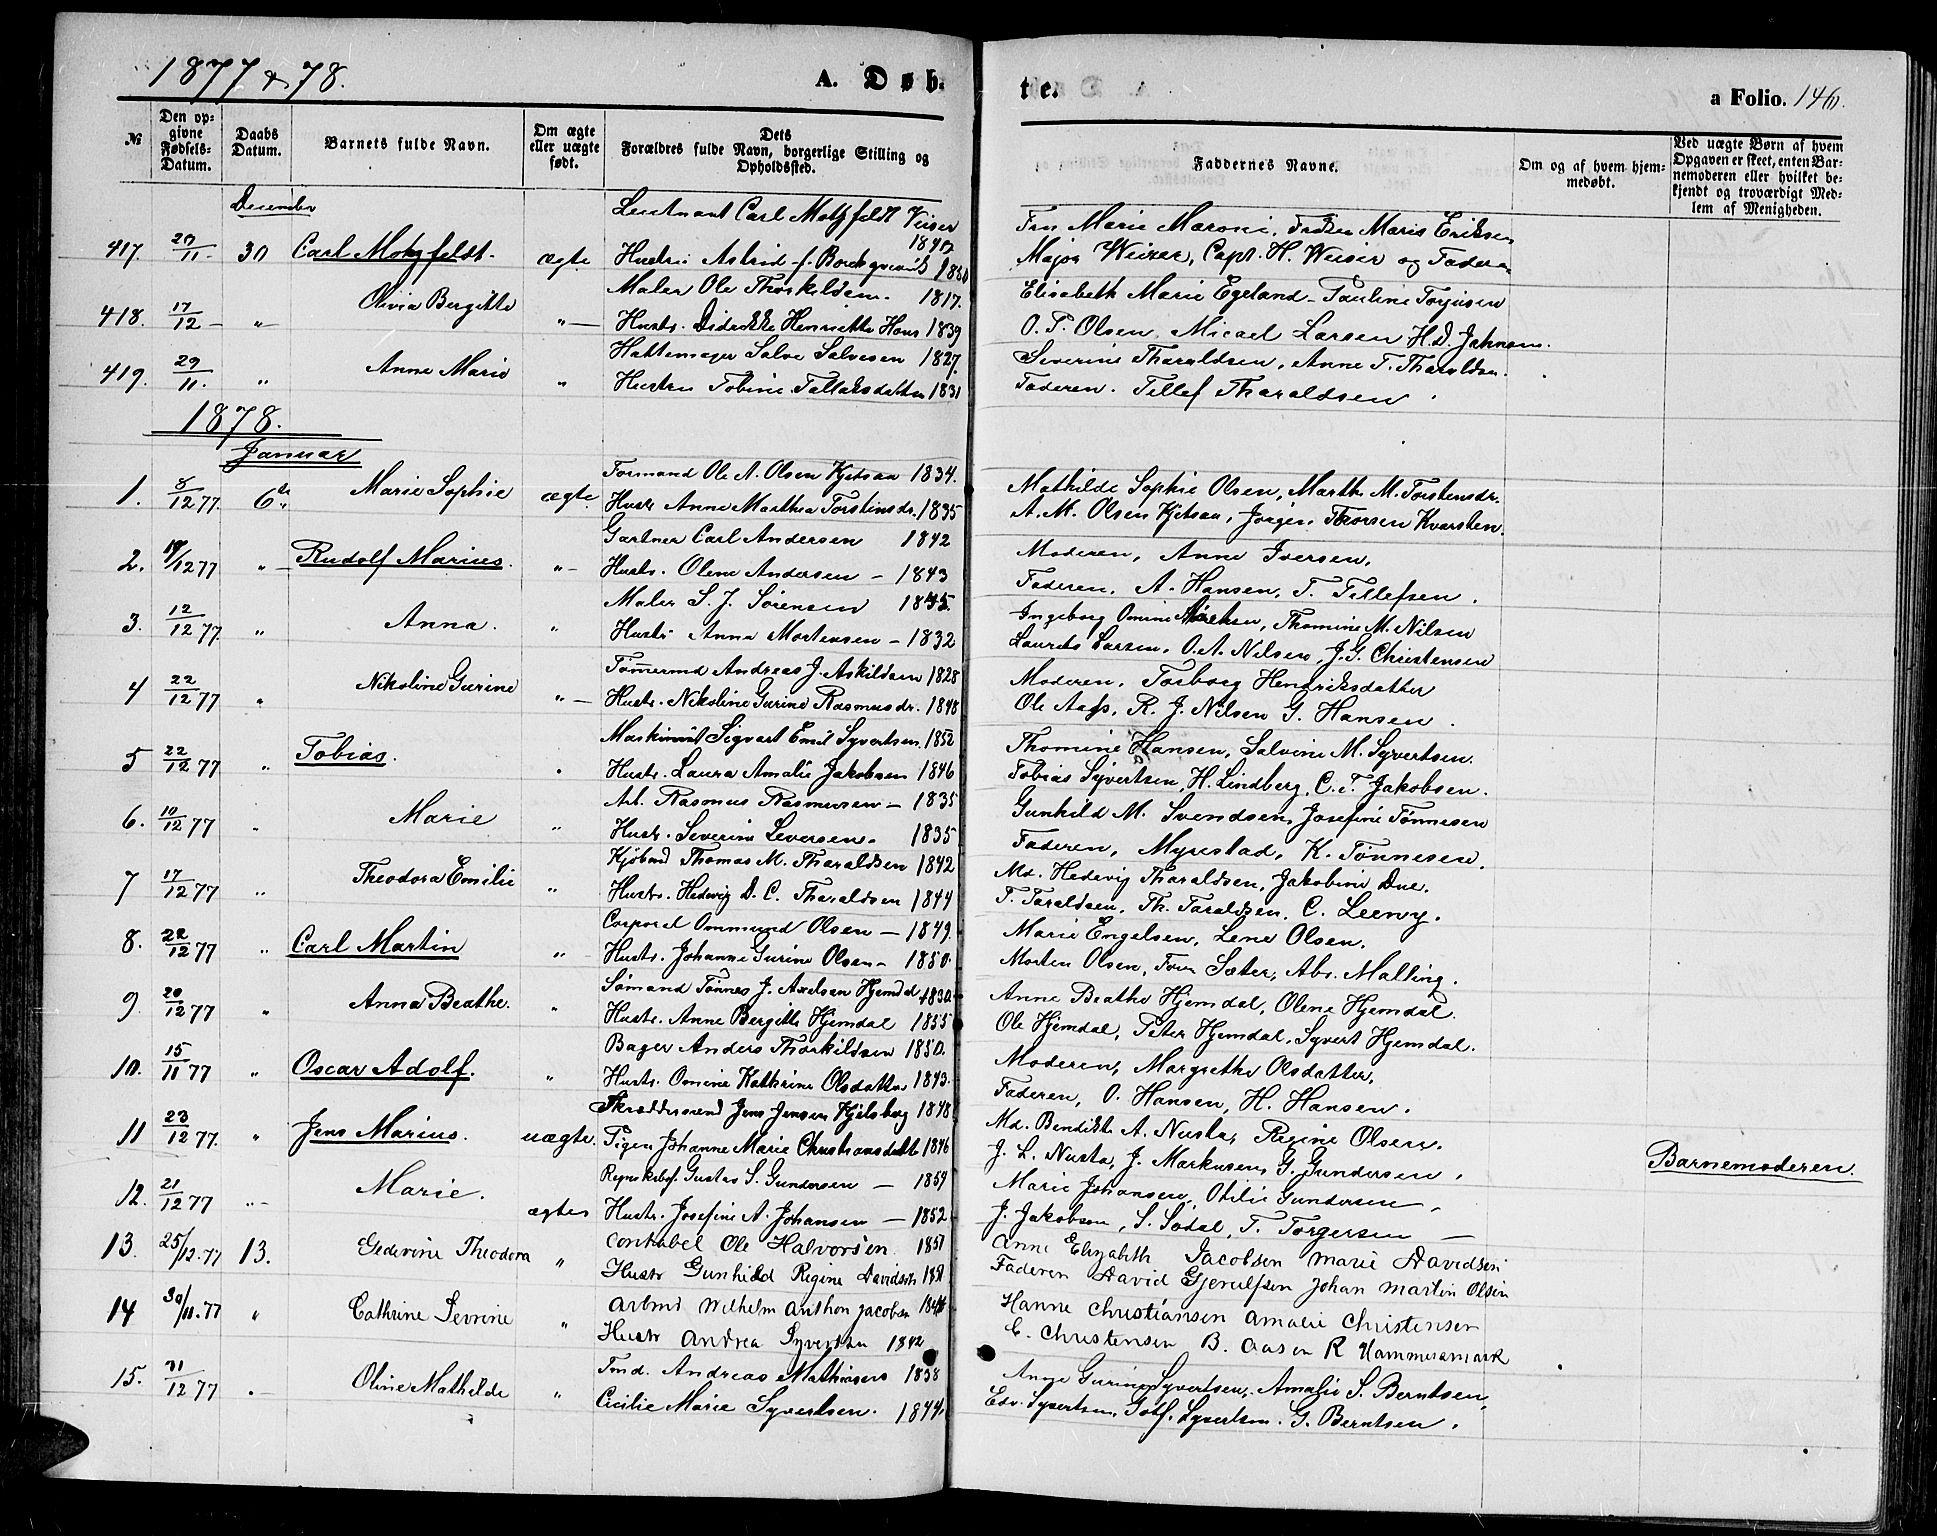 1877 & 78.
A. Døb-
te.
a Folio. 146.
№
Den op-
givne
Fødsels-
Datum.
Daabs
Datum.
Barnets fulde Navn.
Om ægte
eller uægte
født.
Dets
Forældres fulde Navn, borgerlige Stilling og
Opholdssted.
Faddernes Navne.
Om og af hvem hjem-
medøbt.
Ved uægte Børn af hvem
Opgaven er skeet, enten Bar-
nemoderen eller hvilket be-
kjendt og troværdigt Med-
lem af Menigheden.
December
417. 20/11 30 Carl Motzfeldt. ægte Lieutnant Carl Motzfeldt Weiser 1840
Hustru Astrid f. Borchgrevink 1850
Fru Marie Maroni, Frøken Maris Eriksen
Major Weiser, Capt. H. Weiser og Faderen
418. 17/12 " Olivia Bergitte " Maler Ole Thorkildsen. 1817.
Hustr. Didrikke Henriette Hans 1839
Elisabeth Marie Egeland - Pauline Torjusen
O. T. Olsen, Micael Larsen H. D. Jahnsen.
419. 29/11. " Anne Marie " Hattemager Salve Salvesen 1827.
Hustru Tobine Tallaksdatter 1831
Severine Tharaldsen, Anne T. Tharaldsen.
Faderen. Tellef Tharaldsen.
1878.
Januar
1. 8/12 77. 6te Marie Sophie ægte Formand Ole A. Olsen Kjetsaa 1834.
Hustr Anne Marthea Torstensdr. 1835
Mathilde Sophie Olsen, Marthe M. Torstensdr.
A. M. Olsen Kjetsaa, Jørgen Thorsen Kvarsten.
2. 19/12 77 " Rudolf Marius. " Gartner Carl Andersen 1842
Hustr. Olene Andersen - 1843
Moderen, Anne Iversen,
Faderen, A. Hansen, T. Tellefsen.
3. 12/12 77. " Anna. " Maler S. J. Sørensen 1835.
Hustr Anna Mortensen - 1832
Ingeborg Omine, Thomine M. Nilsen
Laurits Larsen, O. A. Nilsen, J. G. Christensen
4 22/12 77 " Nikoline Gurine " Tømermd Andreas J. Askildsen 1828
Hustr. Nikoline Gurine Rasmusdr. 1848
Moderen, Torborg Hendriksdatter
Ole Aass, R. J. Nilsen G. Hansen.
5 22/12 77 " Tobias. " Maskinist Sigvart Emil Syvertsen. 1852
Hustr. Laura Amalie Jakobsen 1846
Thomine Hansen, Salvine M. Syvertsen.
Tobias Syvertsen, H. Lindberg, C. T. Jakobsen.
6. 10/12 77 " Marie " Arb. Rasmus Rasmussen - 1835
Hustr. Severine Seversen. 1835
Gunhild M. Svendsen, Josefine Tønnesen
Faderen, Myrestad, K. Tønnesen.
7 17/12 77 " Theodora Emilie " Kjøbmd Thomas M. Tharaldsen 1842
Hustr. Hedevig D. C. Tharaldsen 1844
Md. Hedevig Tharaldsen, Jakobine Due.
T. Taraldsen, Th. Taraldsen, C. Leevy.
8. 22/12 77 " Carl Martin " Corporal Ommund Olsen - 1849.
Hustr. Johanne Gurine Olsen - 1850.
Marie Engelsen, Lene Olsen.
Morten Olsen, Sæter, Abr. Malling.
9 20/12 77 " Anna Beathe. " Sømand Tønnes J. Axelsen Hjemdal 1830.
Hustr. Anne Bergitte Hjemdal 1855
Anne Beathe Hjemdal, Olene Hjemdal.
Ole Hjemdal, Peter Hjemdal, Syvert Hjemdal.
10. 15/11 77 " Oscar Adolf. " Bager Anders Thorkildsen 1850.
Hustr. Omine Kathrine Olsdatter 1843.
Moderen, Margrethe Olsdatter,
Faderen, O. Hansen, H. Hansen.
11 23/12 77. " Jens Marius. uægte. Skræddersvend Jens Jensen Kjelsberg 1848
Pigen Johanne Marie Christiansdatt 1846
Md. Bendikte A. Nusta, Regine Olsen.
J. L. Nusta, J. Markusen, G. Gundersen.
Barnemoderen.
12. 21/12 77 " Marie. ægte Regnskabsf. Gustav S. Gundersen - 1859
Hustr. Josefine A. Johansen - 1852
Marie Johansen, Otilie Gundersen,
J. Jakobsen, S. Sødal, T. Torgersen -
13. 25/12.77 13. Gederine Theodora " Contabel Ole Halvorsen 1851
Hustr Gunhild Regine Davidsen 1851
Anne Elizabeth Jacobsen Marie Davidsen
Faderen David Gjerulfsen Johan Martin Olsen
14 30/11.77 " Cathrine Sevrine " Arbmd Wilhelm Anthon Jacobsen 1846
Hustr Andrea Syvertsen 1842
Hanne Christiansen Amalie Christensen
C. Christensen B. Aasen R Hammersmark
15. 31/12 77 " Oline Mathilde " Tmd. Andreas Mathiasen 1838
Cicilie Marie Syvertsen. 1844.
Anne Gurine Syvertsen, Amalie S. Berntsen,
Edv. Syvertsen, Gotf. Syvertsen. G. Berntsen.